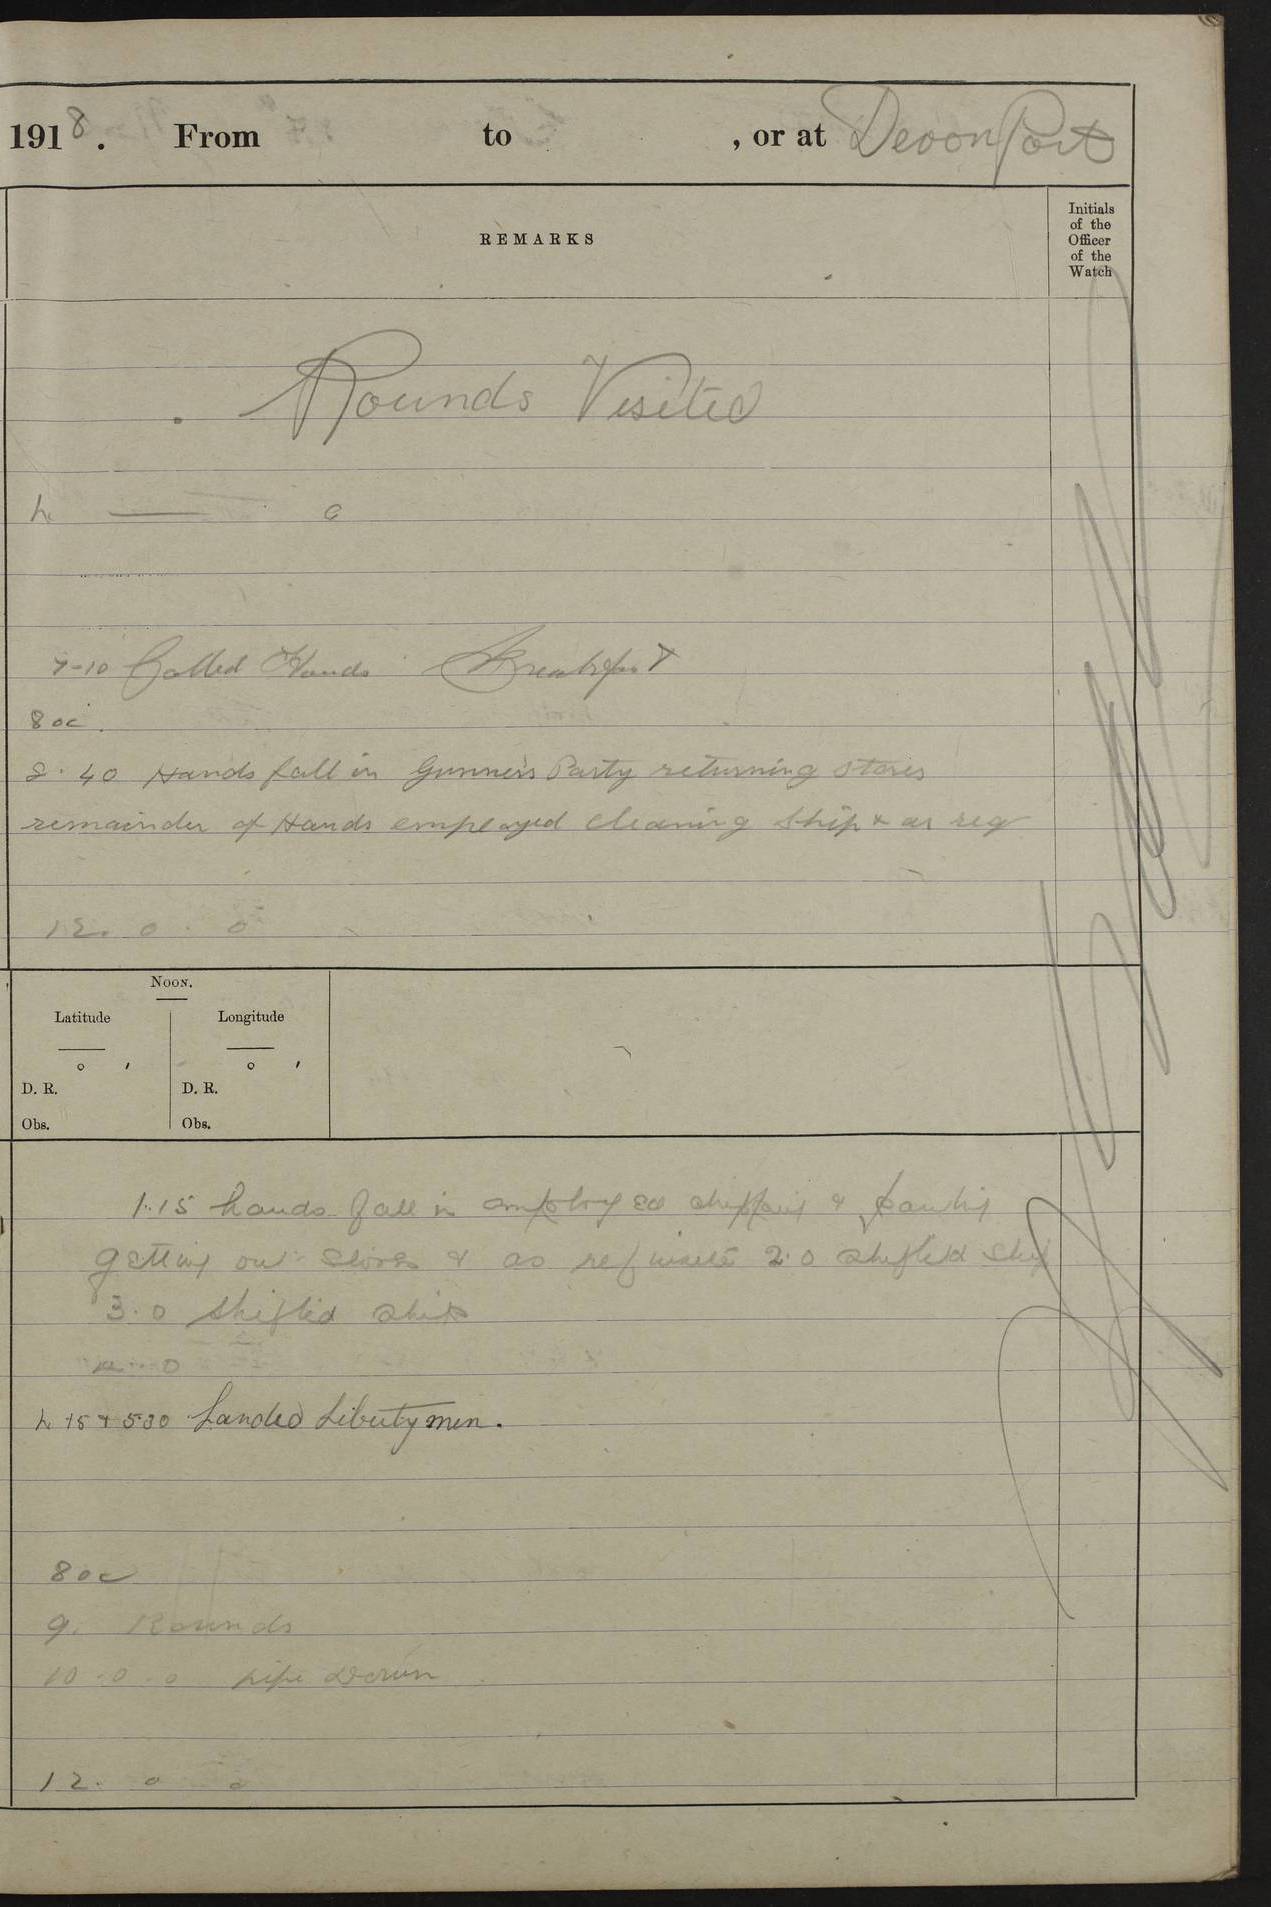 1918. From to , or at DevonPort
REMARKS
Initials
of the
Officer
of the
Watch
Rounds Visited
7-10 Called Hands Breakfast
8 oc
8.40 Hands fall in Gunners Party returning stores
remainder of Hands employed cleaning Ship & as req
12. 0. 0
NOON.
Latitude Longitude
° ′ ° ′
D. R. D. R.
Obs. Obs.
1.15 hands fall in employed chipping &
getting out stores & as requisite 2.0 shifted ship
3.0 shifted ship
4..0
4 15 + 5 30 Landed Libertymen.
8 oc
9. Rounds
10-0-0 pipe down
12. 0 0